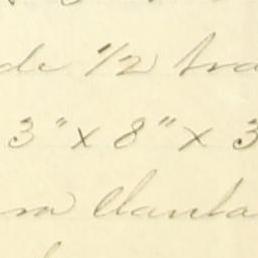 de 1/2 tra
3" x 8" x 3
ra llanta